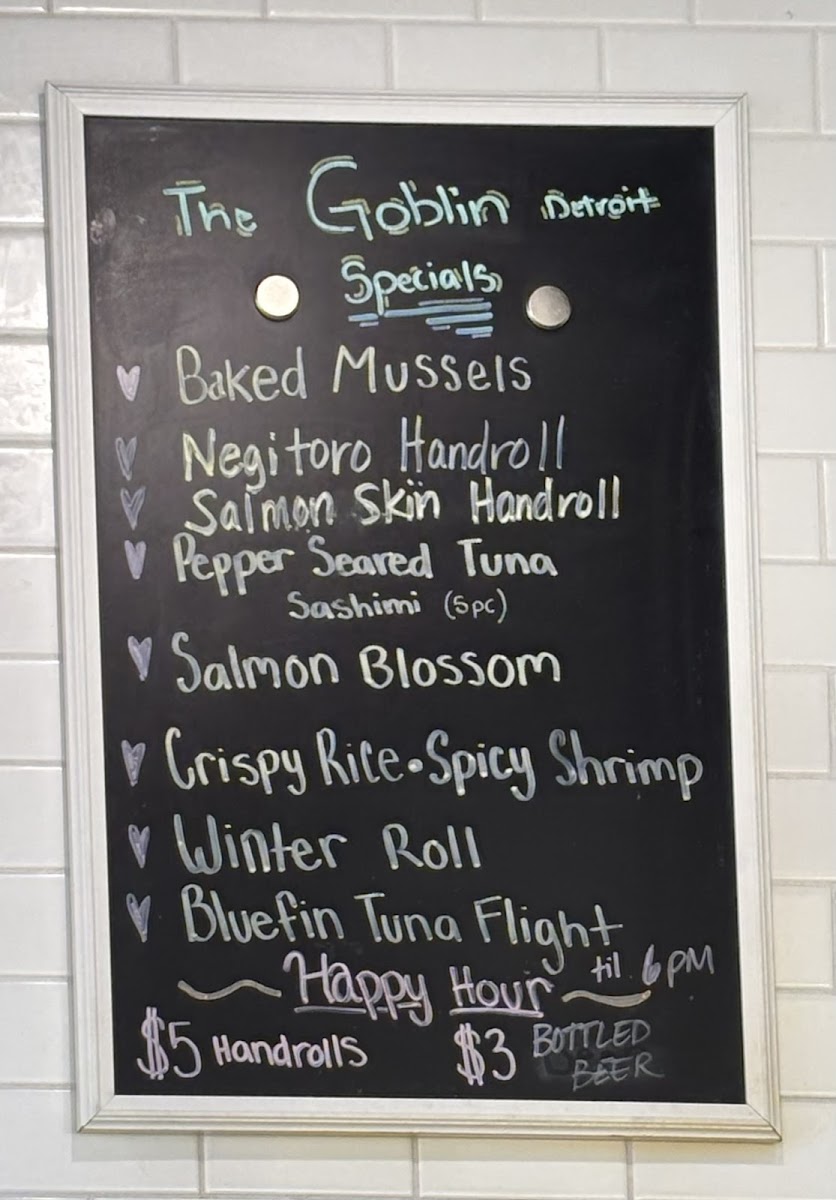 The Goblin Detroit
Specials
Baked Mussels
Negitoro Handroll
Salmon Skin Handroll
Pepper Seared Tuna
Sashimi (5pc)
Salmon Blossom
Crispy Rice • Spicy Shrimp
Winter Roll
Bluefin Tuna Flight
Happy Hour til 6PM
$5 Handrolls $3 BOTTLED
BEER